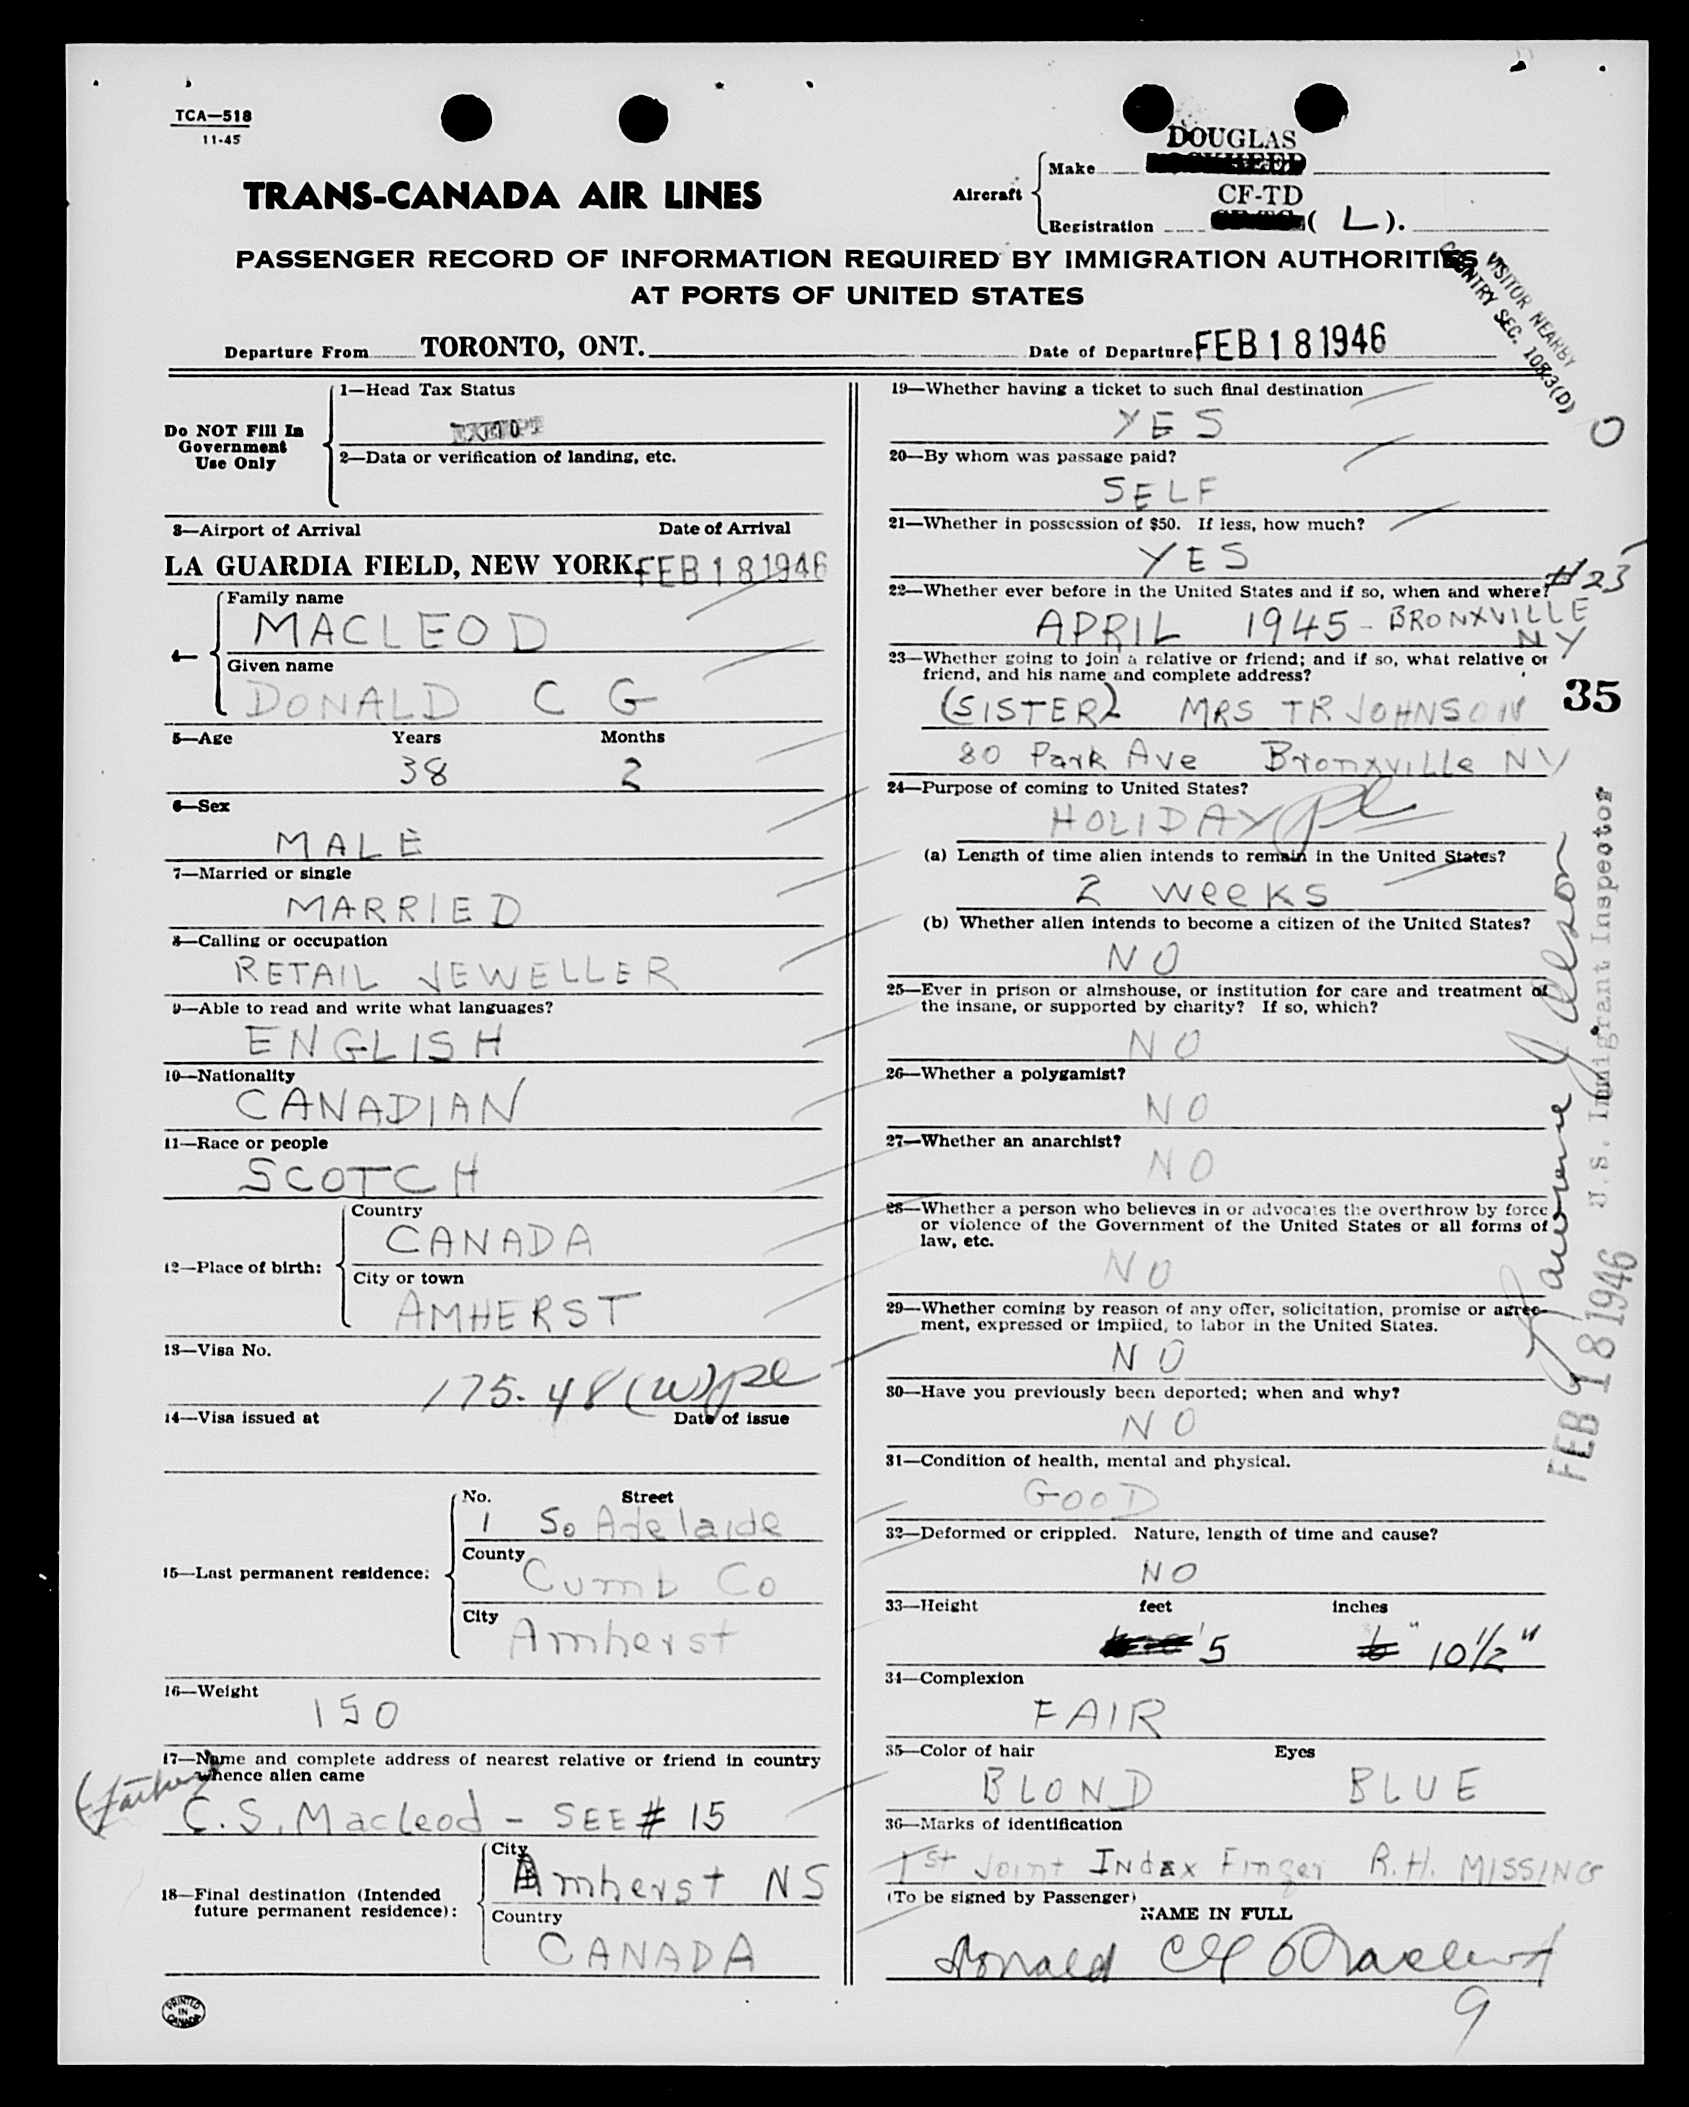 TCA—518
11-45
TRANS-CANADA AIR LINES
Aircraft
Make
DOUGLAS
CF-TD
Registration
( L ).
PASSENGER RECORD OF INFORMATION REQUIRED BY IMMIGRATION AUTHORITIES
AT PORTS OF UNITED STATES
VISITOR NEARBY
COUNTRY SEC. 105.3(D)
Departure From TORONTO, ONT. Date of Departure FEB 18 1946
Do NOT Fill In
Government
Use Only
1—Head Tax Status
EXEMPT
2—Data or verification of landing, etc.
3—Airport of Arrival Date of Arrival
LA GUARDIA FIELD, NEW YORK. FEB 18 1946
4—
Family name
MACLEOD
Given name
DONALD C G
5—Age Years Months
38 2
6—Sex
MALE
7—Married or single
MARRIED
8—Calling or occupation
RETAIL JEWELLER
9—Able to read and write what languages?
ENGLISH
10—Nationality
CANADIAN
11—Race or people
SCOTCH
12—Place of birth:
Country
CANADA
City or town
AMHERST
13—Visa No.
175.48 (W) pl
14—Visa issued at Date of issue
15—Last permanent residence:
No. Street
1 So Adelaide
County
Cumb Co
City
Amherst
16—Weight
150
17—Name and complete address of nearest relative or friend in country
whence alien came
(Father)
C. S. Macleod - SEE # 15
18—Final destination (Intended
future permanent residence):
City
Amherst NS
Country
CANADA
PRINTED
IN
CANADA
19—Whether having a ticket to such final destination
YES
0
20—By whom was passage paid?
SELF
21—Whether in possession of $50. If less, how much?
YES
#23
22—Whether ever before in the United States and if so, when and where?
APRIL 1945 - BRONXVILLE
NY
23—Whether going to join a relative or friend; and if so, what relative or
friend, and his name and complete address?
35
(SISTER) MRS TR JOHNSON
80 Park Ave Bronxville NY
24—Purpose of coming to United States?
HOLIDAY pl
(a) Length of time alien intends to remain in the United States?
2 weeks
(b) Whether alien intends to become a citizen of the United States?
NO
25—Ever in prison or almshouse, or institution for care and treatment of
the insane, or supported by charity? If so, which?
NO
26—Whether a polygamist?
NO
27—Whether an anarchist?
NO
28—Whether a person who believes in or advocates the overthrow by force
or violence of the Government of the United States or all forms of
law, etc.
NO
29—Whether coming by reason of any offer, solicitation, promise or agree-
ment, expressed or implied, to labor in the United States.
NO
30—Have you previously been deported; when and why?
NO
31—Condition of health, mental and physical.
GOOD
32—Deformed or crippled. Nature, length of time and cause?
NO
33—Height feet inches
' 5 " 10 1/2 "
34—Complexion
FAIR
35—Color of hair Eyes
BLOND BLUE
36—Marks of identification
1st Joint Index Finger R.H. MISSING
(To be signed by Passenger)
NAME IN FULL
Donald CG Macleod
9
U.S. Immigrant Inspector
FEB 18 1946